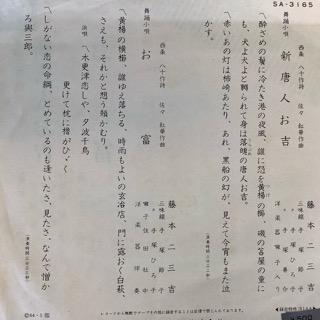 SA-3165
舞踊小唄
新唐人お吉
西条 八十作詩
佐々 紅華作曲
藤本二三吉
三味線 手塚 節子
〽酔ざめの鬢に冷たき港の夜風、誰に怨を黄楊の櫛、磯の苫屋の童に
も、犬よ犬よと嘲られて身は落魄の唐人お吉。
〽赤いあの灯は柿崎あたり、あれ、黒船の幻が、見えて今宵もまた泣
かす。
舞踊小唄
お富
西条 八十作詩
佐々 紅華作曲
藤本二三吉
三味線 手塚 節子
〃 手塚ひろ子
囃子 住田社中
洋楽器伴奏
〽黄楊の横櫛、誰ゆえ落ちる、時雨もよいの玄冶店、門に露おく白萩、
さえも、それかと想う頬かむり。
浜唄
〽木更津恋しや、夕波千鳥
更けて枕に櫓がひゞく
〽しがない恋の命綱、とめているのも逢いたさ、見たさ、なんで憎か
ろ與三郎。